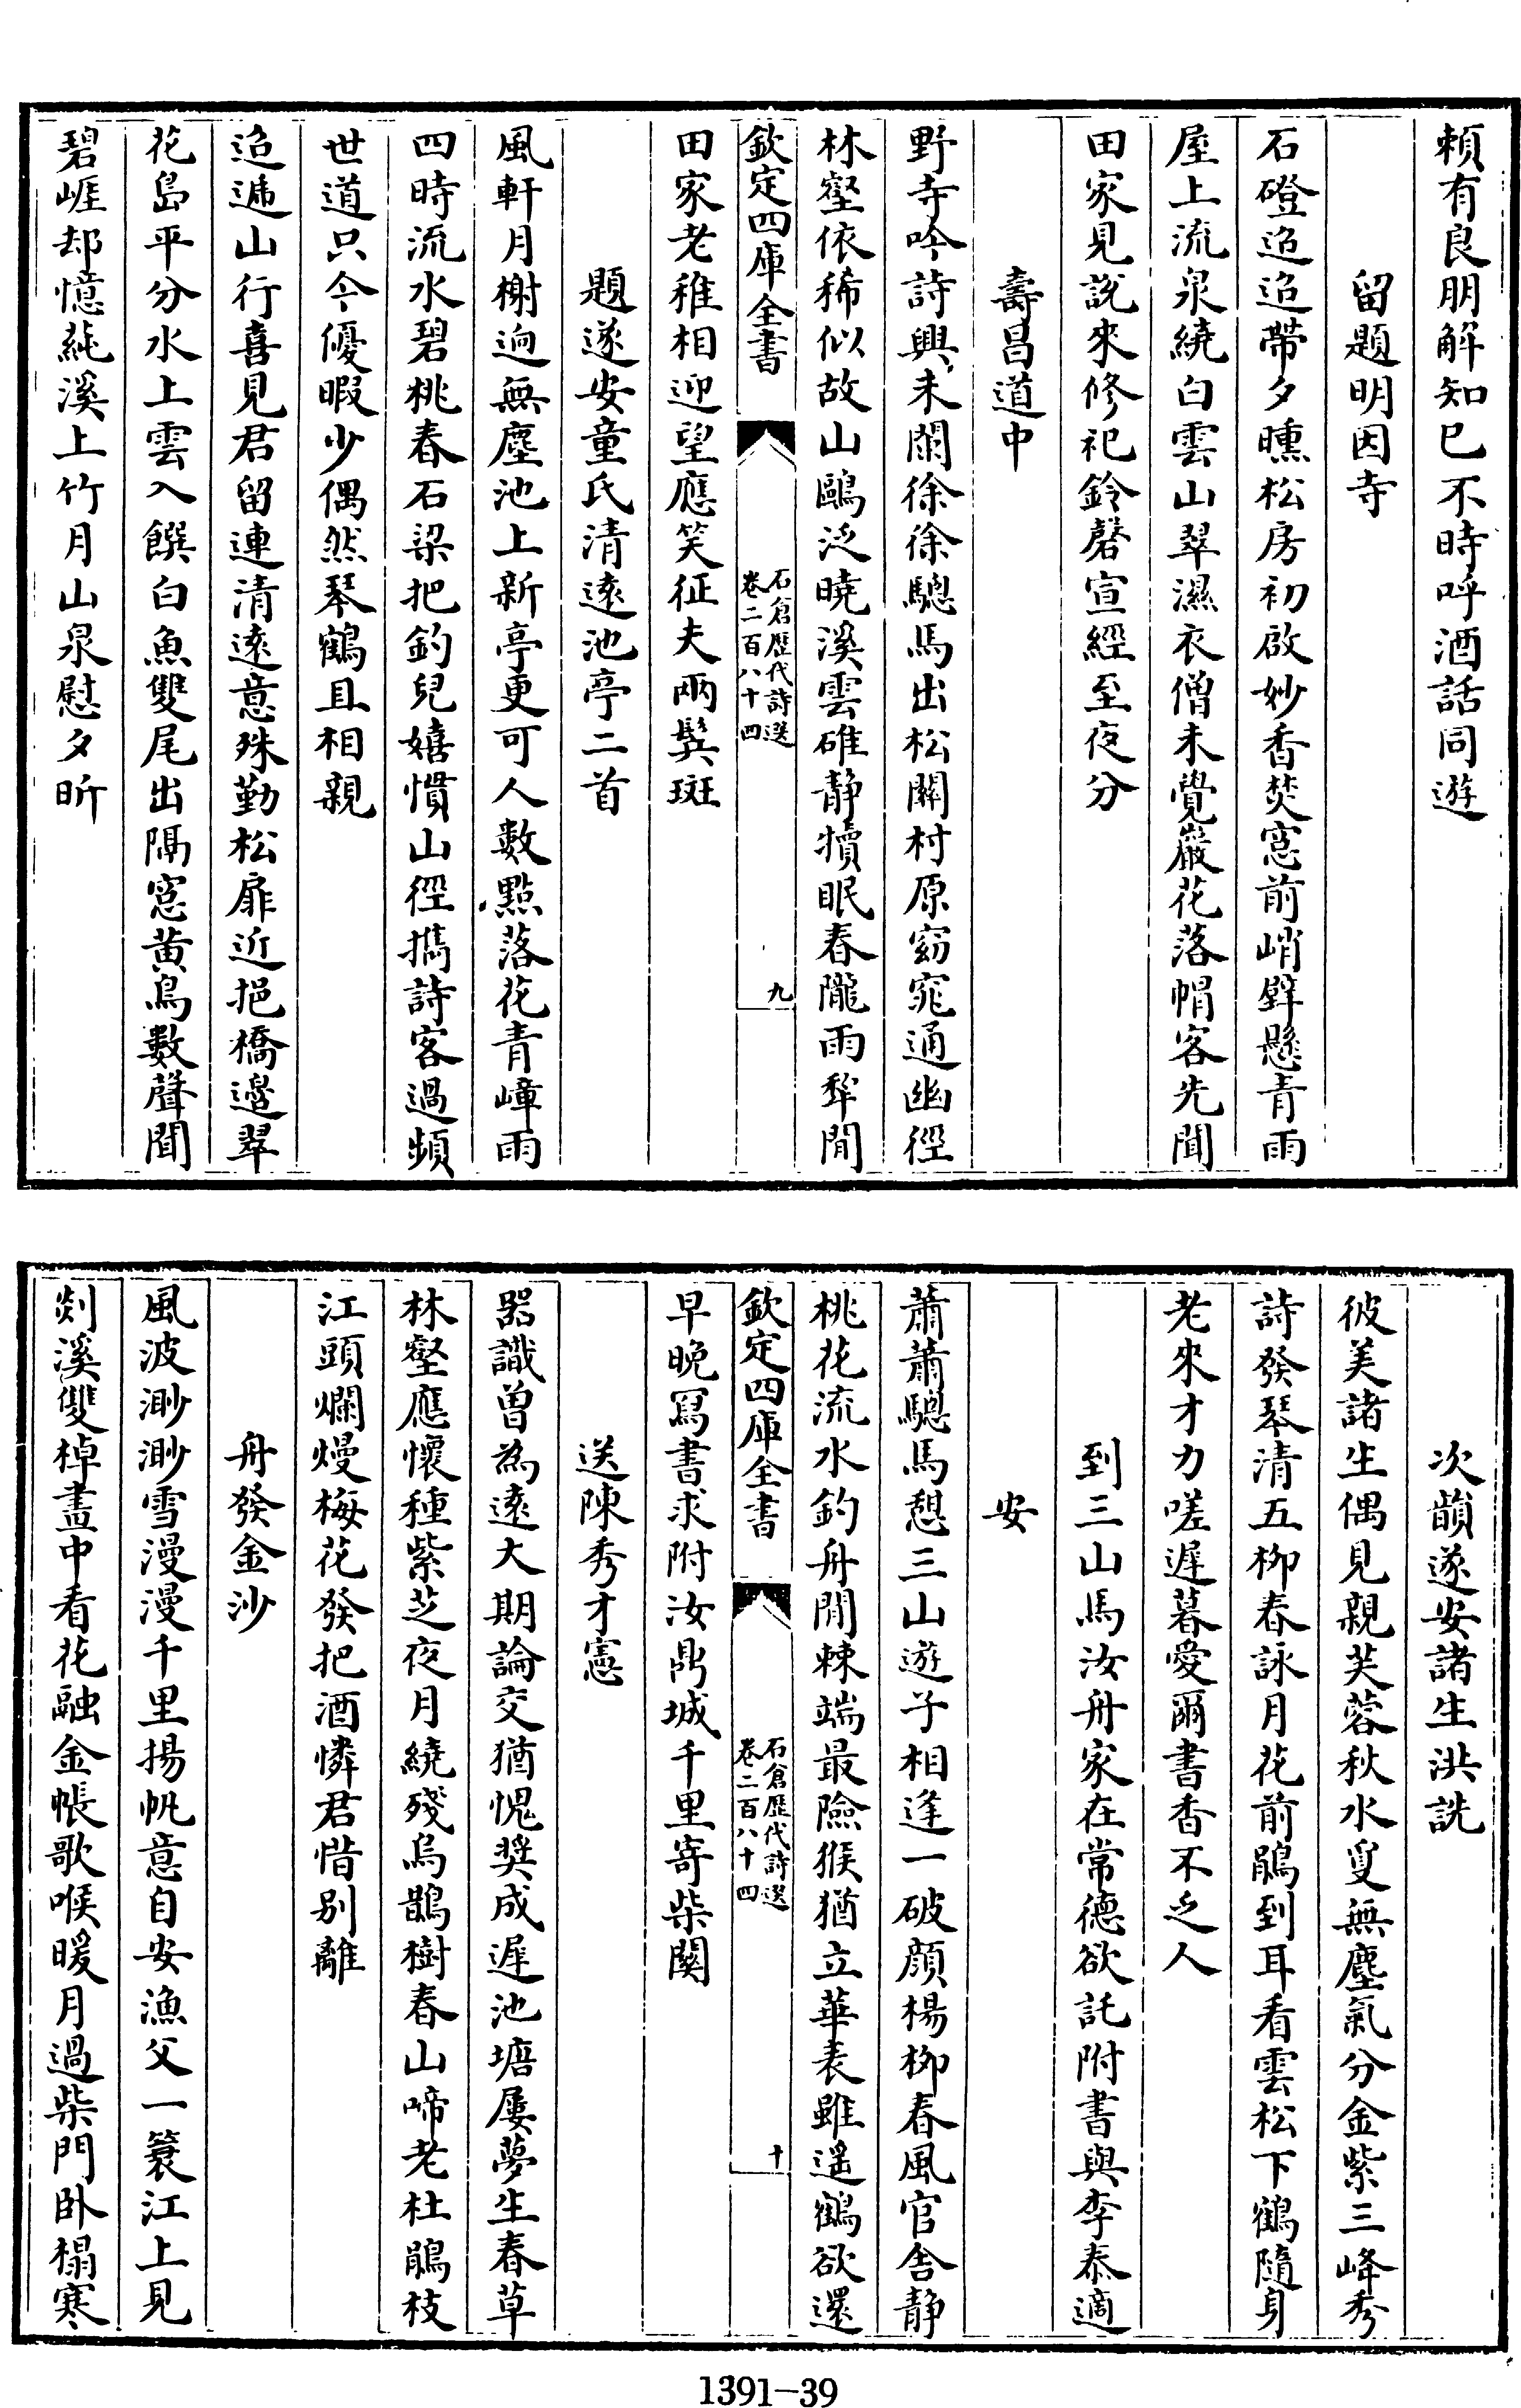 賴有良朋解知已不時呼酒話同遊
留題明因寺
石磴迢迢帶夕曛松房初啟妙香焚窓前峭壁懸青雨
屋上流泉繞白雲山翠濕衣僧未覺巖花落帽客先聞
田家見說來修祀鈴磬宣經至夜分
壽昌道中
野寺吟詩興未闌徐徐驄馬出松關村原窈窕通幽徑
林壑依稀似故山鷗泛曉溪雲碓靜犢眠春隴雨犂閒
欽定四庫全書
石倉歷代詩選
卷二百八十四
九
田家老稚相迎望應笑征夫兩鬂斑
題遂安童氏清遠池亭二首
風軒月榭逈無塵池上新亭更可人數點落花青嶂雨
四時流水碧桃春石梁把釣兒嬉慣山徑擕詩客過頻
世道只今優暇少偶然琴鶴且相親
迢遞山行喜見君留連清遠意殊勤松扉近挹橋邉翠
花島平分水上雲入饌白魚雙尾出隔窓黄鳥數聲聞
碧崕却憶蒓溪上竹月山泉慰夕昕
次韻遂安諸生洪詵
彼美諸生偶見親芙蓉秋水敻無塵氣分金紫三峰秀
詩發琴清五栁春詠月花前鵑到耳看雲松下鶴隨身
老來才力嗟遲暮愛爾書香不乏人
到三山馬汝舟家在常德欲託附書與李泰適
安
蕭蕭驄馬憇三山遊子相逢一破顔楊栁春風官舍靜
桃花流水釣舟閒棘端最險猴猶立華表雖遥鶴欲還
欽定四庫全書
石倉歷代詩選
卷二百八十四
十
早晚冩書求附汝鼎城千里寄柴関
送陳秀才憲
器識曽為遠大期論交猶愧奨成遲池塘屢夢生春草
林壑應懷種紫芝夜月繞殘烏鵲樹春山啼老杜鵑枝
江頭爛熳梅花發把酒憐君惜别離
舟發金沙
風波渺渺雪漫漫千里揚帆意自安漁父一簑江上見
剡溪雙棹畫中看花融金帳歌喉暖月過柴門卧榻寒
1391—39